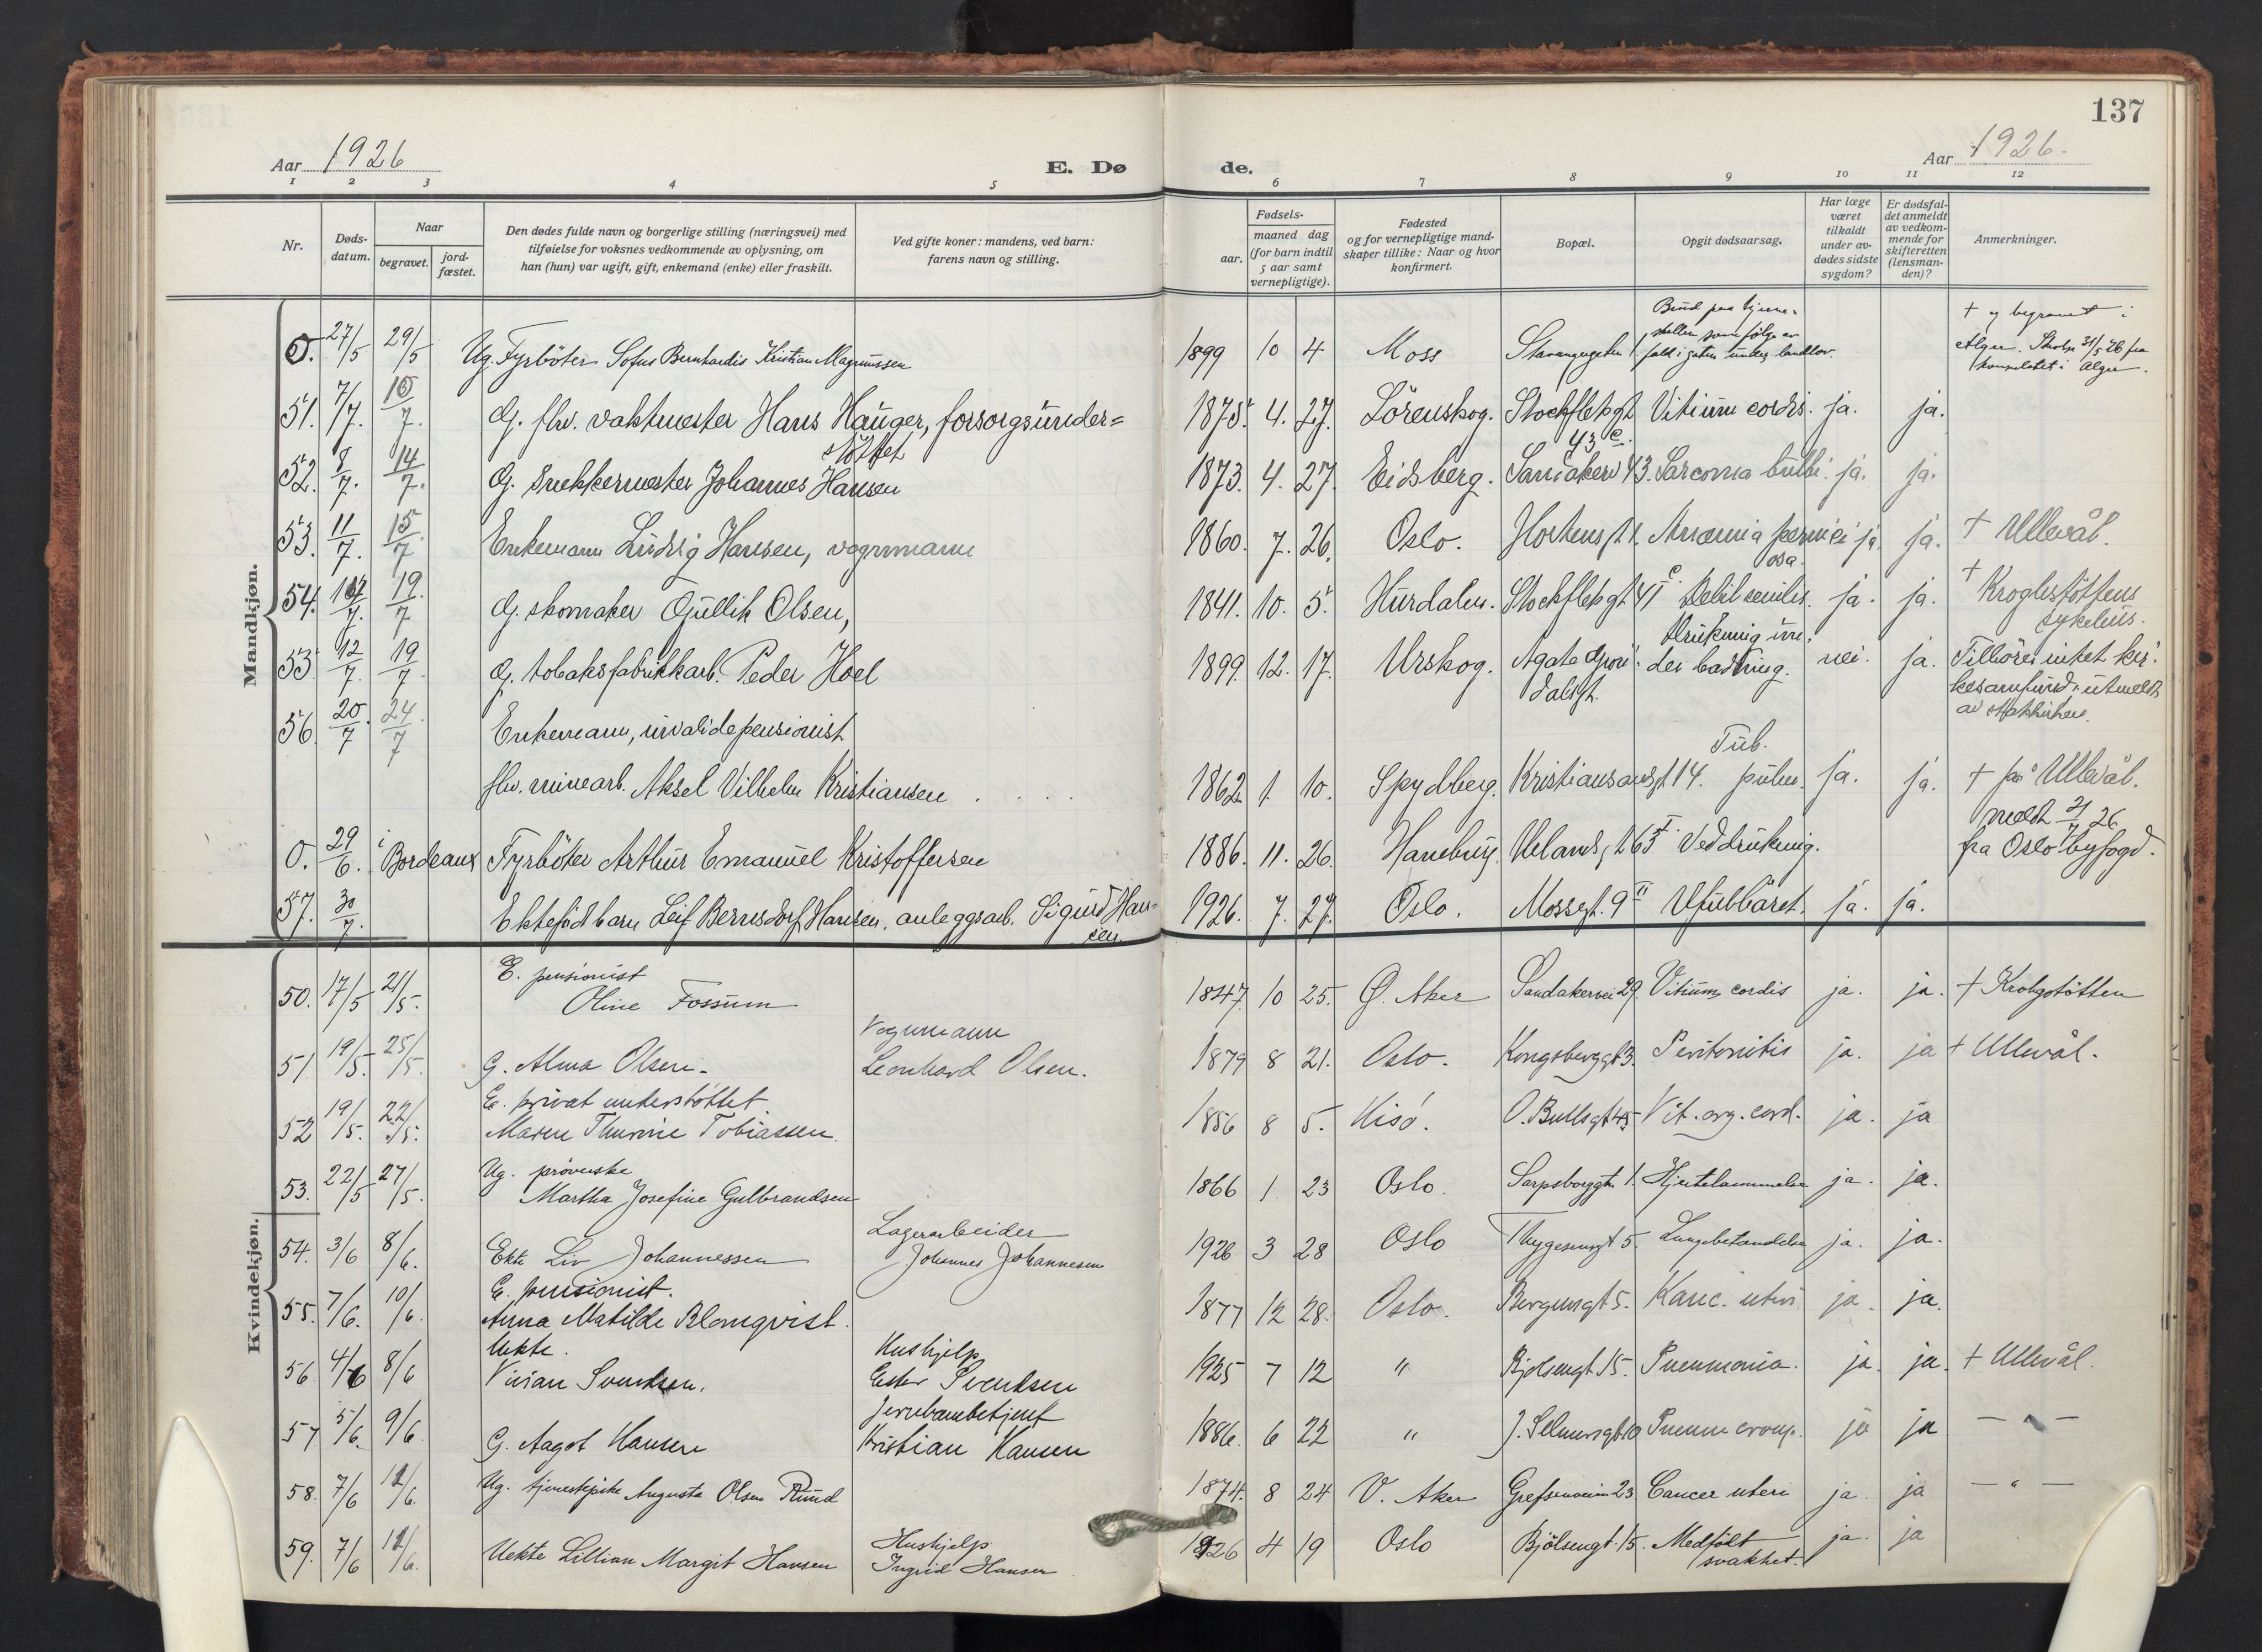 137
Aar 1926
E. Dø
de.
Aar 1926.
1 2 3 4 5 6 7 8 9 10 11 12
Nr.
Døds-
datum.
Naar
begravet.
jord-
fæstet.
Den dødes fulde navn og borgerlige stilling (næringsvei) med
tilføielse for voksnes vedkommende av oplysning, om
han (hun) var ugift, gift, enkemand (enke) eller fraskilt.
Ved gifte koner: mandens, ved barn:
farens navn og stilling.
Fødsels-
aar.
maaned dag
(for barn indtil
5 aar samt
vernepligtige).
Fødested
og for vernepligtige mand-
skaper tillike: Naar og hvor
konfirmert.
Bopæl.
Opgit dødsaarsag.
Har læge
været
tilkaldt
under av-
dødes sidste
sygdom?
Er dødsfal-
det anmeldt
av vedkom-
mende for
skifteretten
(lensman-
den)?
Anmerkninger.
Mandkjøn.
0. 27/5 29/5 Ug. Fyrböter Sofus Bernhardis Kristian Magnussen 1899 10 4 Moss Stavangergaten 1 Brud paa hjerne-
skallen som følge av
fald i gaten under landlov.
† og begravet i
Alger. Skrlse 31/5 26 fra
konsulatet i Alger.
51. 7/7. 10/7. G. fhv. vaktmester Hans Hauger, forsorgsunder=
støttet 1875. 4. 27. Lörenskog. Stockfletsgt
43 c. Vitium cordis. ja. ja.
52. 8/7. 14/7. G. snekkermester Johannes Hansen 1873. 4. 27. Eidsberg. Sandakerv 43. Sarcoma bulbi. ja. ja.
53. 11/7. 15/7 Enkemann Ludvig Hansen, vognmann 1860. 7. 26. Oslo. Hortensgt 1. Anæmia pernici
osa ja. ja. † Ullevål.
54. 14/7. 19/7 G. skomaker Gullik Olsen, 1841. 10. 5. Hurdalen. Stockfletsgt 41 c. Debil senilis. ja. ja. † Kroghstöttens
sykehus.
55. 12/7. 19/7. G. tobaksfabrikkarb. Peder Hoel 1899. 12. 17. Urskog. Agate Grön
dalsgt. Drukning un-
der badning. nei. ja. Tilhörer intet kir-
kesamfund, utmeldt
av statskirken.
56. 20/7. 24/7 Enkemann, invalidepensionist
fhv. minearb. Aksel Vilhelm Kristiansen 1862 1. 10. Spydberg. Kristiansandsgt 14. Tub.
pulm. ja. ja. † på Ullevål.
0. 29/6. i Bordeaux Fyrböter Arthur Emanuel Kristoffersen 1886. 11. 26. Hamburg. Uelandsgt 63 I. Ved drukning. meldt 2/7 26
fra Oslo byfogd.
57. 30/7. Ektefödt barn Leif Bernsdorf Hansen. anleggsarb. Sigurd Han-
sen. 1926. 7. 27. Oslo. Mossegt. 9 II Ufullbåret. ja. ja.
Kvindekjøn.
50. 17/5 21/5. E. pensionist
Oline Fossum 1847. 10 25. Ø. Aker Sandakervei 29. Vitium cordis ja. ja. † Krohgstötten
51 19/5. 25/5. G. Alma Olsen. Vognmann
Leonhard Olsen. 1879 8 21. Oslo. Kongsberggt 3. Peritonitis ja. ja † Ullevål.
52 19/5. 22/5. E. privat understöttet
Maren Thurine Tobiassen. 1856 8 5. O. Bullsgt 45 Vit. org. cord. ja. ja
53. 22/5 27/5. Ug. pröverske
Martha Josefine Gulbrandsen 1866 1. 23 Oslo. Sarpsborggt. 1. Hjertelammelse ja. ja.
54. 3/6 8/6. Ekte Liv Johannessen Lagerarbeider
Johannes Johannesen 1926 3 28 Oslo Thygesensgt 5. Lungebetændelse ja. ja.
55. 7/6. 10/6. E. pensionist.
Anna Matilde Blomqvist. 1877 12 28. Oslo. Bergensgt 5. Kanc. uteri ja. ja.
56 4/6 8/6 Uekte.
Vivian Svendsen. Hushjelp
Ester Svendsen 1925 7 12 " Bjölsengt 15. Pneumonia. ja. ja. † Ullevål.
57 5/6. 9/6. G. Aagot Hansen Jernbanebetjent
Kristian Hansen 1886. 6 22 " J. Selmersgt 10 Pneum croup. ja ja — " —
58. 7/6 12/6. Ug. tjenestepike Augusta Olsen Rund 1874. 8 24 V. Aker Grefsenveien 23 Cancer uteri ja. ja — " —
59. 7/6 12/6. Uekte Lillian Margit Hansen Hushjelp
Ingrid Hansen 1926 4 19 Oslo Bjölsengt. 15. Medfödt
svakhet. ja. ja